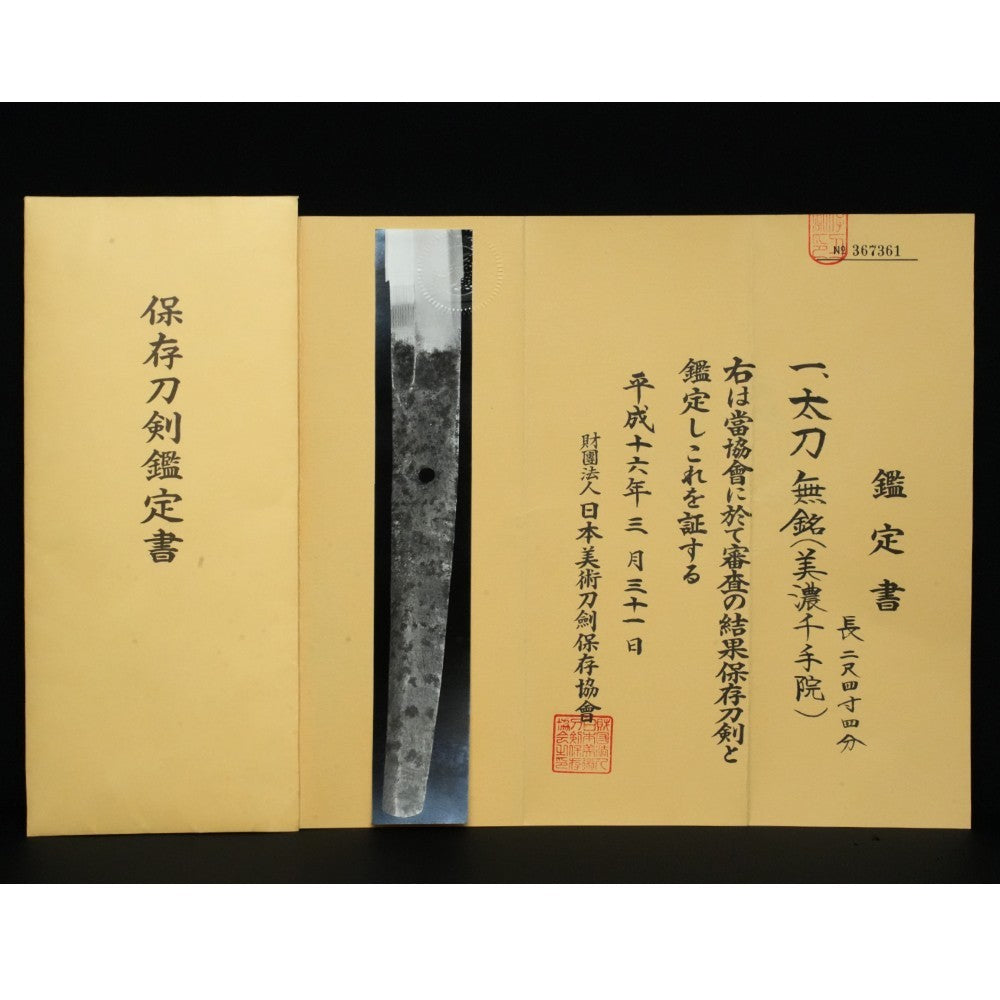 保存刀剣鑑定書
№ 367361
鑑定書
長 二尺四寸四分
一、太刀 無銘(美濃千手院)
右は當協會に於て審査の結果保存刀剣と
鑑定しこれを証する
平成十六年三月三十一日
財團法人日本美術刀劍保存協會